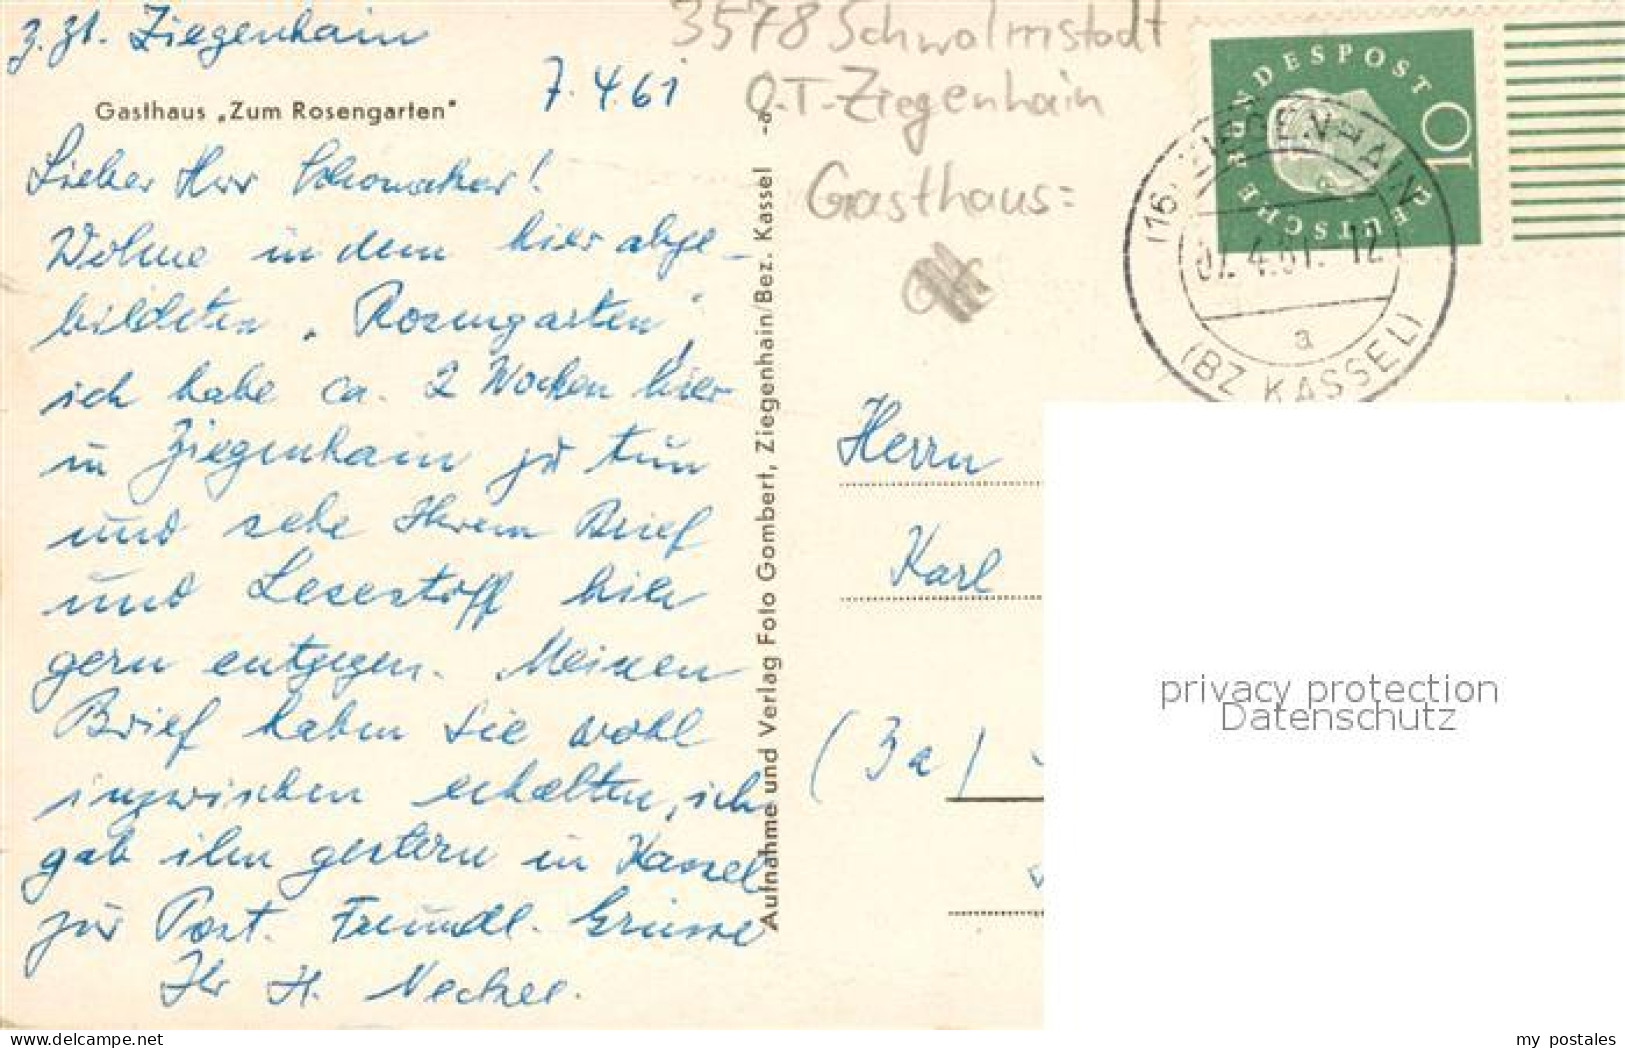 z. Zt. Ziegenhain
7.4.61
Gasthaus „Zum Rosengarten"
Lieber Herr Schomaker!
Wohne in dem hier abge-
bildeten „Rosengarten",
ich habe ca. 2 Wochen hier
in Ziegenhain zu tun
und sehe Ihrem Brief
und Lesestoff hier
gern entgegen. Meinen
Brief haben Sie wohl
inzwischen erhalten, ich
gab ihn gestern in Kassel
zur Post. Freundl. Grüsse
Ihr H.
Aufnahme und Verlag Foto Gombert, Ziegenhain/Bez. Kassel -a-
3578 Schwalmstadt
O.T. Ziegenhain
Gasthaus:
DEUTSCHE BUNDESPOST
10
(16) ZIEGENHAIN
07. 4.61. 12
a
(BZ KASSEL)
Herrn
Karl
(3a)
privacy protection
Datenschutz
delcampe.net
my_postales